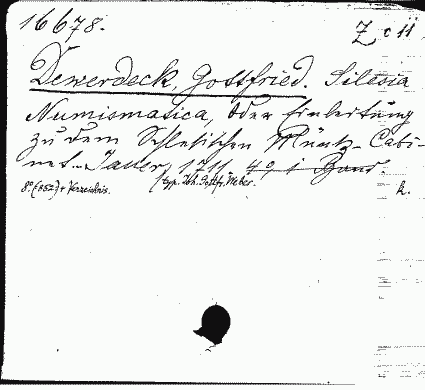 16678.
Z c ii
Dewerdeck, Gottfried. Silesia
Numismatica, oder Einleitung
zu dem Schlesischen Müntz-Cabi-
net. Jauer, 1711 4o, 1 Band.
8o. (852) + Verzeichnis. (typ. Joh. Gottfr. Weber. k.